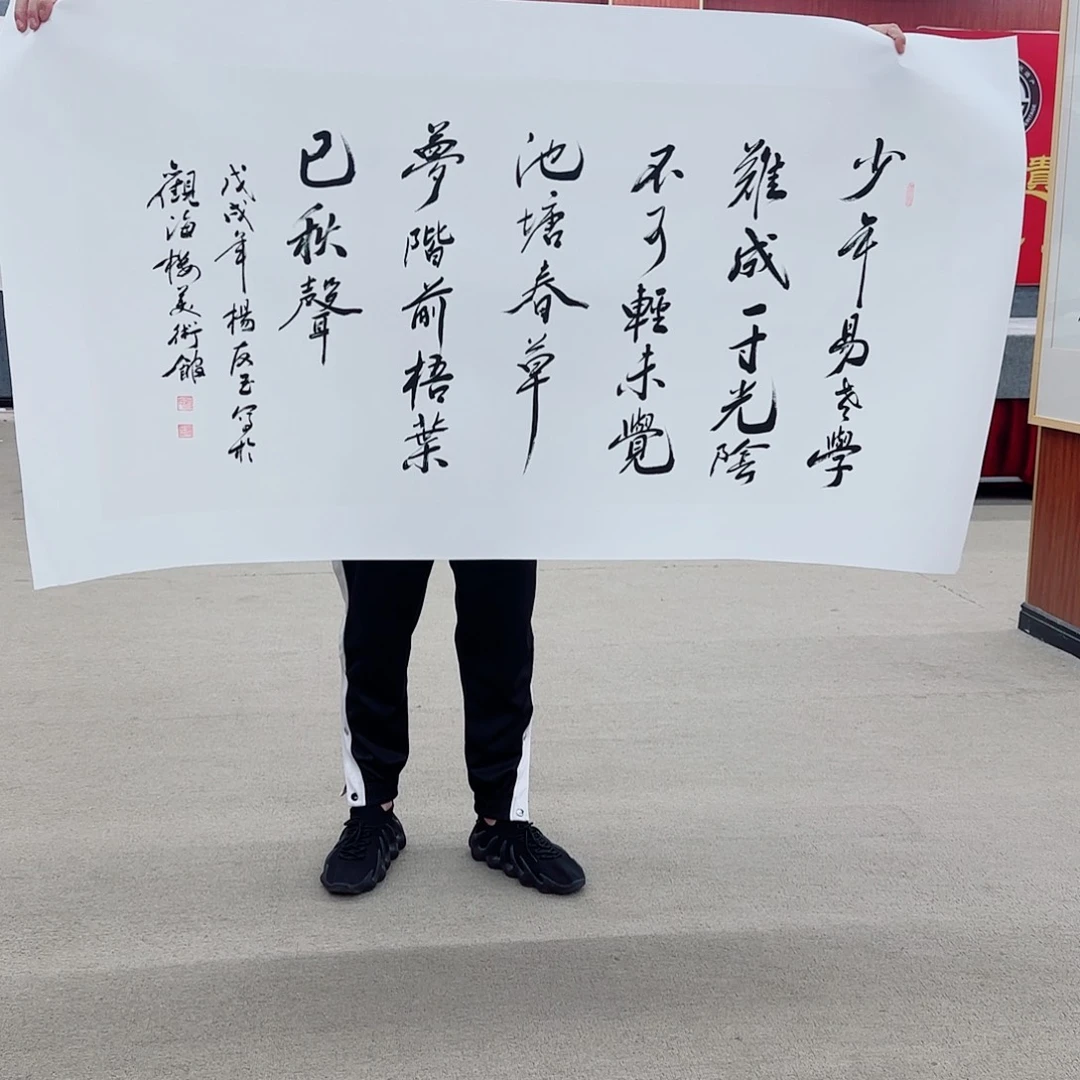 少年易老學
難成一寸光陰
不可輕未覺
池塘春草
夢階前梧葉
已秋聲
戊戌年楊反玉寫於
觀海樓美術館